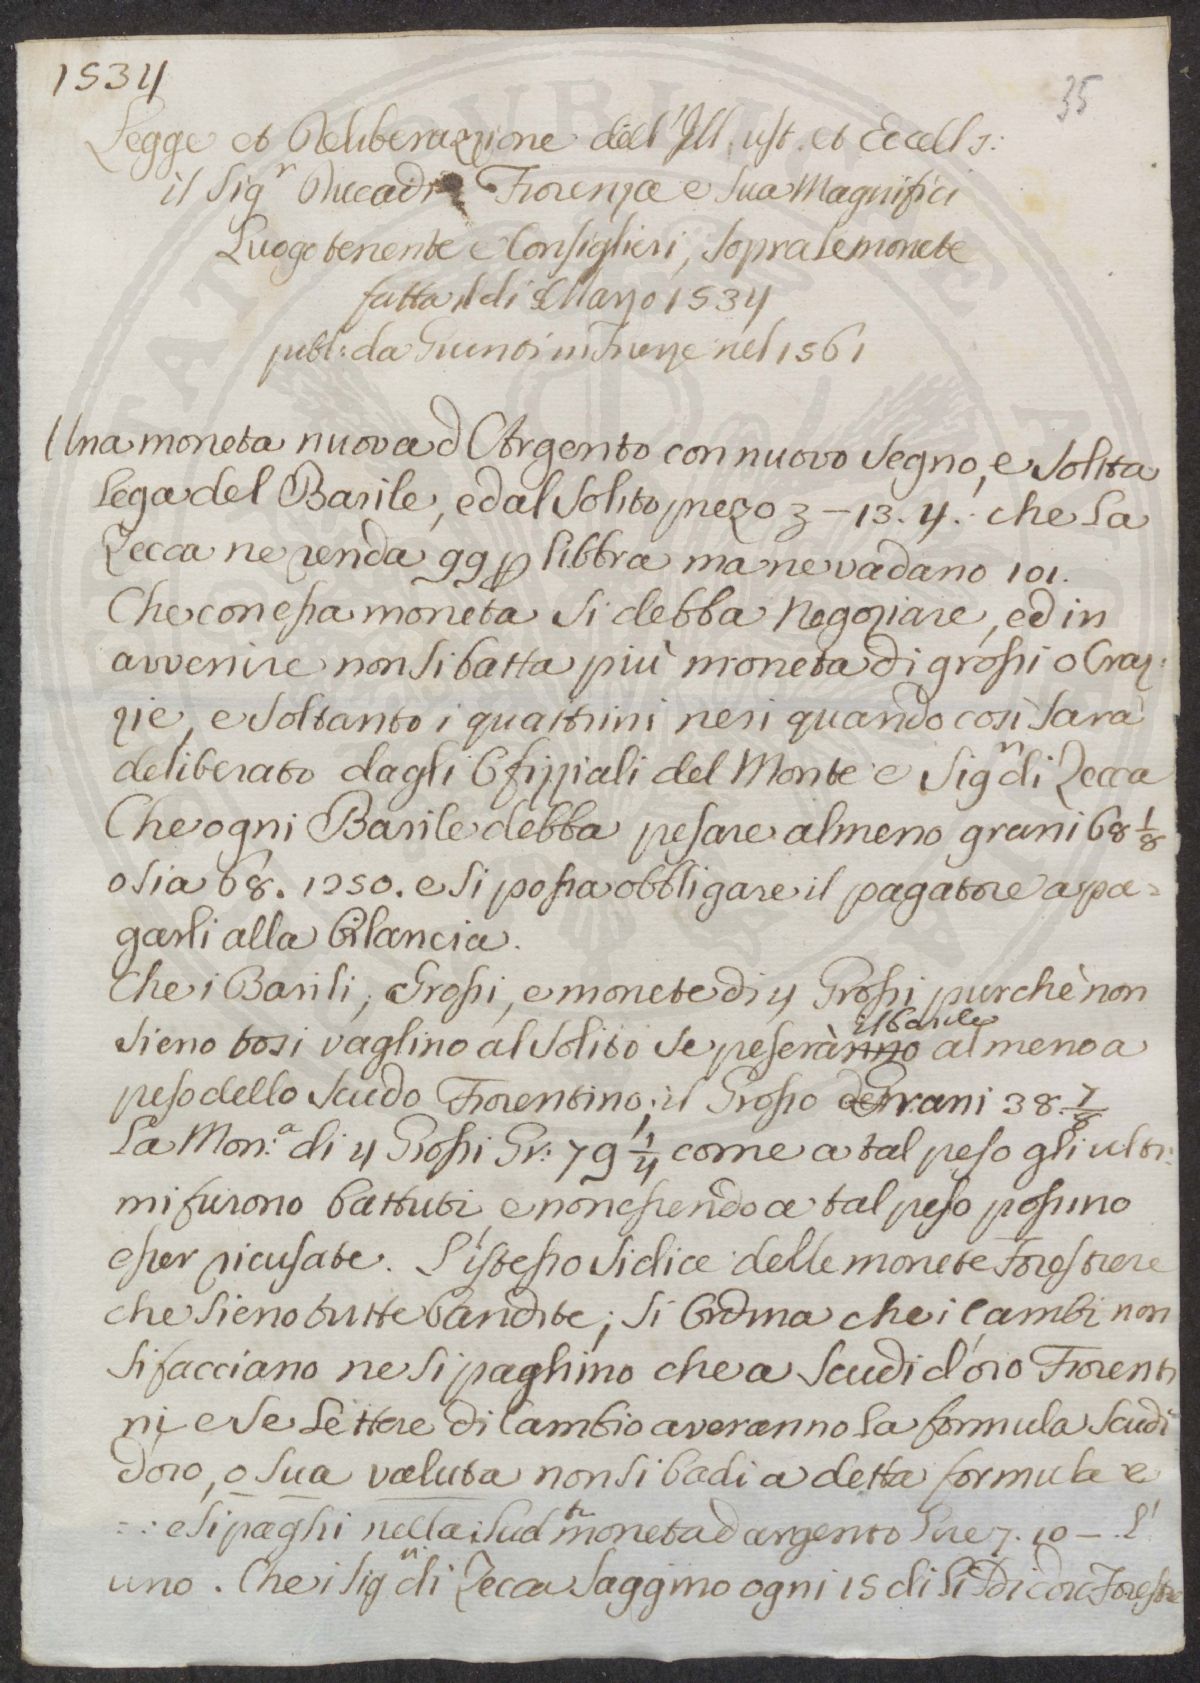 1534
35
Legge et Deliberazione dell'Ill. ust. et Eccell s:
il Sig.r Duca di Fiorenza e Sua Magnifici
Luogotenente e Consiglieri, sopra le monete
fatta il di Marzo 1534
publ: da Giunti in Firenze nel 1561
Una moneta nuova d'Argento con nuovo segno, e solita
Lega del Barile, ed al solito prezo 3 – 13. 4. che La
Zecca ne renda 99 p libbra ma ne vadano 101.
Che con essa moneta si debba Negoziare, ed in
avvenire non si batta più moneta di grossi o Craz:
zie, e soltanto i quattrini neri quando così sarà
deliberato dagli Ofizziali del Monte e Sig.ri di Zecca
Che ogni Barile debba pesare almeno grani 68 1/8
o sia 68. 1250. e si possa obbligare il pagatore a pa=
garli alla Bilancia.
Che i Barili, Grossi, e monete di 4 Grossi purchè non
sieno tosi vaglino al solito se peserànno il Barile almeno a
peso dello scudo Fiorentino; il Grosso de Grani 38. 7/8
La Mon.a di 4 Grossi Gr: 79 1/4 come a tal peso gli ulti:
mi furono battuti, e non essendo a tal peso possino
esser ricusate. L'istesso si dice delle monete Forestiere
che sieno tutte bandite; si Ordina che i Cambi non
si facciano ne si paghino che a Scudi d'oro Fiorenti
ni e se Lettere di Cambio averanno la formula scudi
d'oro, o sua valuta non si badi a detta formula e
=: e si paghi nella sud.ta moneta d'argento Lire 7. 10 – L'
uno. Che i Sig.ri di Zecca saggino ogni 15 di li di d'oro Forestie